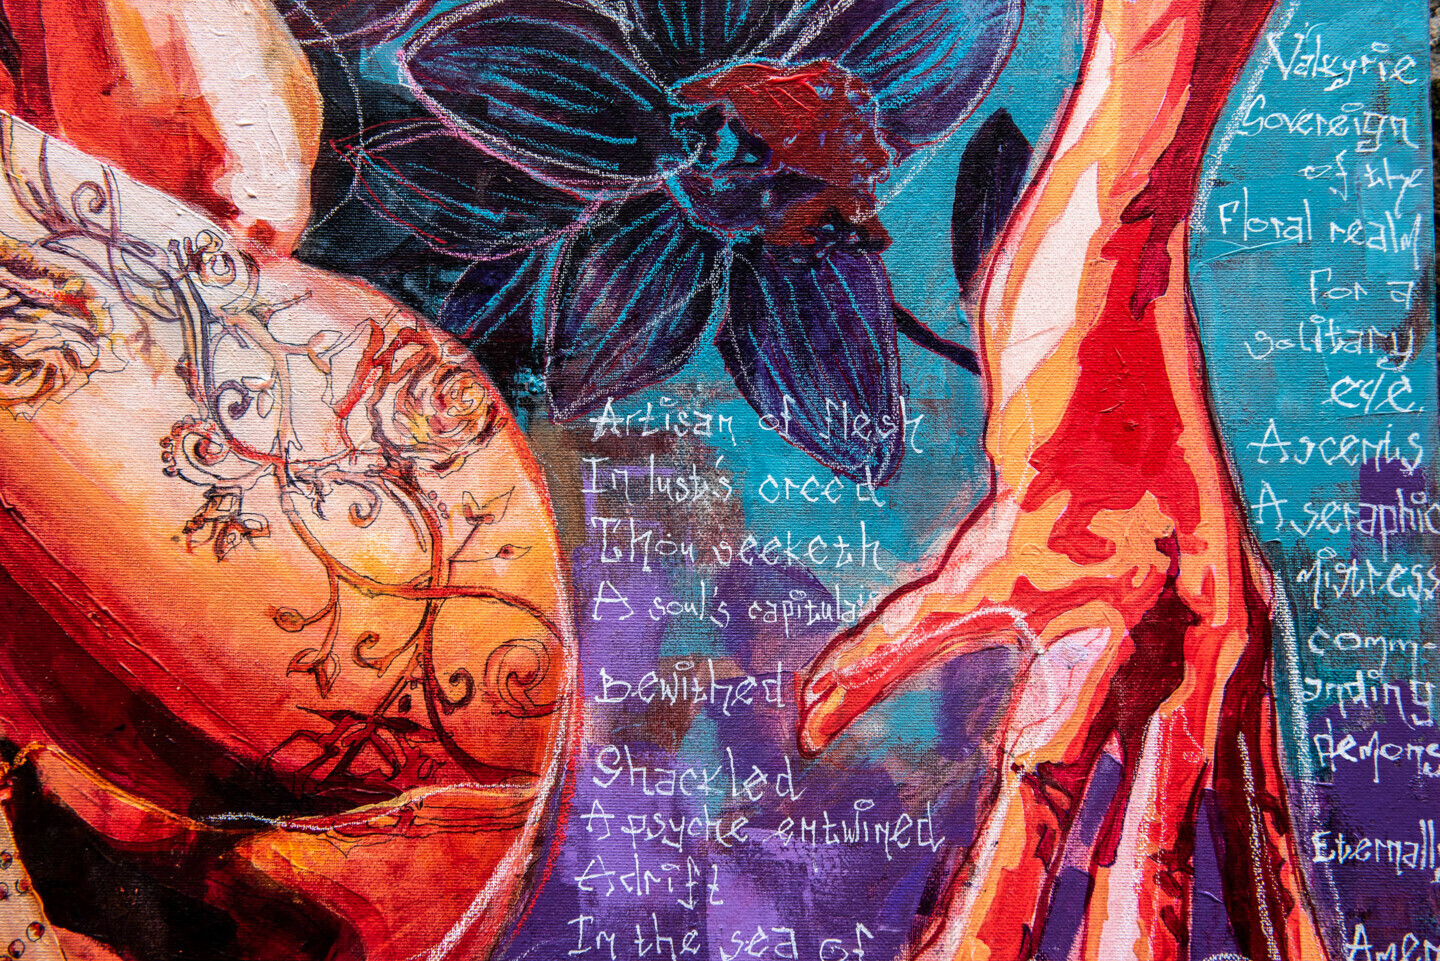 Artisan of flesh
In lust's creed
Thou seeketh
A soul's capitulati
Bewithed
Shackled
A psyche entwined
Adrift
In the sea of
Valkyrie
Sovereign
of the
Floral realm
For a
solitary
eye
Ascends
A seraphic
Mistress
comm-
anding
Demons
Eternally
Amen